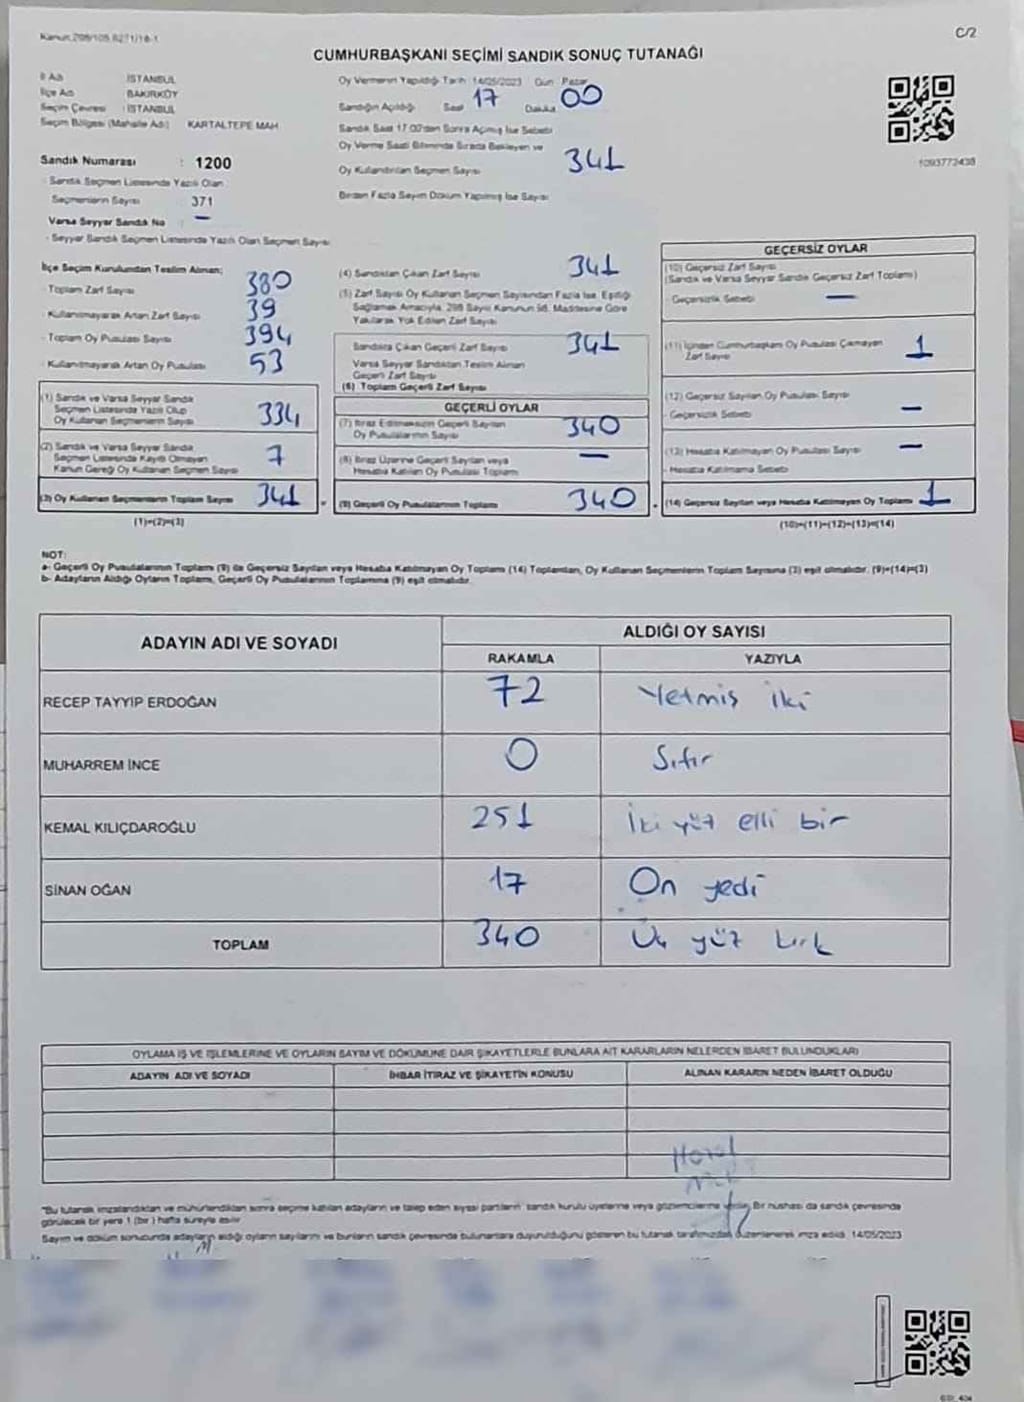 C/2
CUMHURBAŞKANI SEÇİMİ SANDIK SONUÇ TUTANAĞI
İl Adı İSTANBUL
İlçe Adı BAKIRKÖY
Seçim Çevresi : İSTANBUL
Seçim Bölgesi (Mahalle Adı) KARTALTEPE MAH
Sandık Numarası : 1200
- Sandık Seçmen Listesinde Yazılı Olan
Seçmenlerin Sayısı 371
Varsa Seyyar Sandık No —
- Seyyar Sandık Seçmen Listesinde Yazılı Olan Seçmen Sayısı
Oy Vermenin Yapıldığı Tarih 14/05/2023 Gün Pazar
Sandığın Açıldığı Saat 17 Dakika 00
Sandık Saat 17.00'den Sonra Açılmış İse Sebebi
Oy Verme Saati Bitiminde Sırada Bekleyen ve
Oy Kullandırılan Seçmen Sayısı 341
Birden Fazla Sayım Döküm Yapılmış İse Sayısı
1093772438
İlçe Seçim Kurulundan Teslim Alınan;
- Toplam Zarf Sayısı 380
- Kullanılmayarak Artan Zarf Sayısı 39
- Toplam Oy Pusulası Sayısı 394
- Kullanılmayarak Artan Oy Pusulası 53
(1) Sandık ve Varsa Seyyar Sandık
Seçmen Listesinde Yazılı Olup
Oy Kullanan Seçmenlerin Sayısı 334
(2) Sandık ve Varsa Seyyar Sandık
Seçmen Listesinde Kayıtlı Olmayan
Kanun Gereği Oy Kullanan Seçmen Sayısı 7
(3) Oy Kullanan Seçmenlerin Toplam Sayısı 341
(1)+(2)=(3)
(4) Sandıktan Çıkan Zarf Sayısı 341
(5) Zarf Sayısı Oy Kullanan Seçmen Sayısından Fazla İse, Eşitliği
Sağlamak Amacıyla, 298 Sayılı Kanunun 98. Maddesine Göre
Yakılarak Yok Edilen Zarf Sayısı
Sandıkta Çıkan Geçerli Zarf Sayısı 341
Varsa Seyyar Sandıktan Teslim Alınan
Geçerli Zarf Sayısı
(6) Toplam Geçerli Zarf Sayısı
GEÇERLİ OYLAR
(7) İtiraz Edilmeksizin Geçerli Sayılan
Oy Pusulalarının Sayısı 340
(8) İtiraz Üzerine Geçerli Sayılan veya
Hesaba Katılan Oy Pusulası Toplamı —
(9) Geçerli Oy Pusulalarının Toplamı 340
GEÇERSİZ OYLAR
(10) Geçersiz Zarf Sayısı
(Sandık ve Varsa Seyyar Sandık Geçersiz Zarf Toplamı)
- Geçersizlik Sebebi —
(11) İçinden Cumhurbaşkanı Oy Pusulası Çıkmayan
Zarf Sayısı 1
(12) Geçersiz Sayılan Oy Pusulası Sayısı
- Geçersizlik Sebebi —
(13) Hesaba Katılmayan Oy Pusulası Sayısı —
- Hesaba Katılmama Sebebi
(14) Geçersiz Sayılan veya Hesaba Katılmayan Oy Toplamı 1
(10)+(11)+(12)+(13)=(14)
NOT:
a- Geçerli Oy Pusulalarının Toplamı (9) ile Geçersiz Sayılan veya Hesaba Katılmayan Oy Toplamı (14) Toplamları, Oy Kullanan Seçmenlerin Toplam Sayısına (3) eşit olmalıdır. (9)+(14)=(3)
b- Adayların Aldığı Oyların Toplamı, Geçerli Oy Pusulalarının Toplamına (9) eşit olmalıdır.
ADAYIN ADI VE SOYADI
ALDIĞI OY SAYISI
RAKAMLA YAZIYLA
RECEP TAYYİP ERDOĞAN 72 Yetmiş iki
MUHARREM İNCE 0 Sıfır
KEMAL KILIÇDAROĞLU 251 İki yüz elli bir
SİNAN OĞAN 17 On yedi
TOPLAM 340 Üç yüz kırk
OYLAMA İŞ VE İŞLEMLERİNE VE OYLARIN SAYIM VE DÖKÜMÜNE DAİR ŞİKAYETLERLE BUNLARA AİT KARARLARIN NELERDEN İBARET BULUNDUKLARI
ADAYIN ADI VE SOYADI İHBAR İTİRAZ VE ŞİKAYETİN KONUSU ALINAN KARARIN NEDEN İBARET OLDUĞU
"Bu tutanak imzalandıktan ve mühürlendikten sonra seçime katılan adayların ve talep eden siyasi partilerin sandık kurulu üyelerine veya gözlemcilerine verilir. Bir nushası da sandık çevresinde
görülecek bir yere 1 (bir) hafta süreyle asılır
Sayım ve döküm sonucunda adayların aldığı oyların sayılarını ve bunların sandık çevresinde bulunanlara duyurulduğunu gösteren bu tutanak tarafımızdan düzenlenerek imza edildi. 14/05/2023